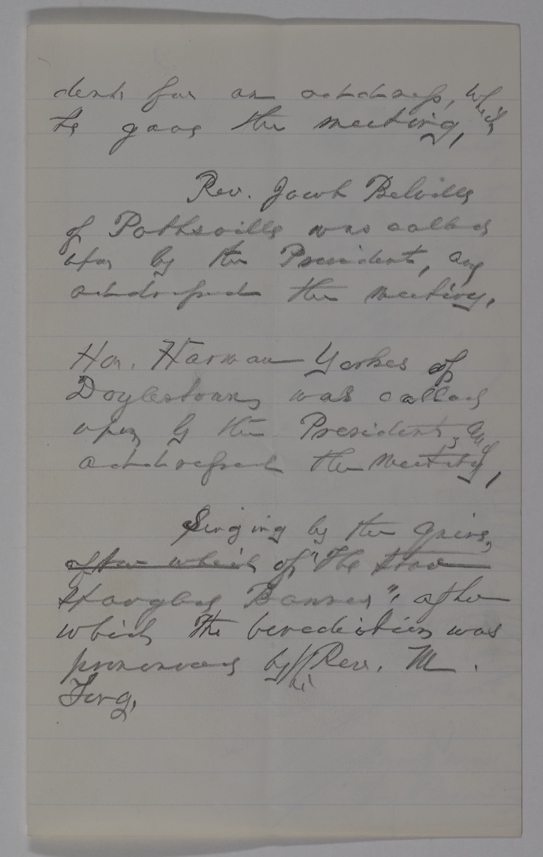 dent, for an address, which
he gave the meeting,
Rev. Jacob Belville
of Pottsville was called
upon by the President, and
addressed the meeting.
Hon. Harman Yerkes of
Doylestown, was called
upon by the President, and
addressed the meeting,
Singing by the Choir,
after which of "The Star
Spangled Banner", after
which the benediction was
pronounced by Rev. M.